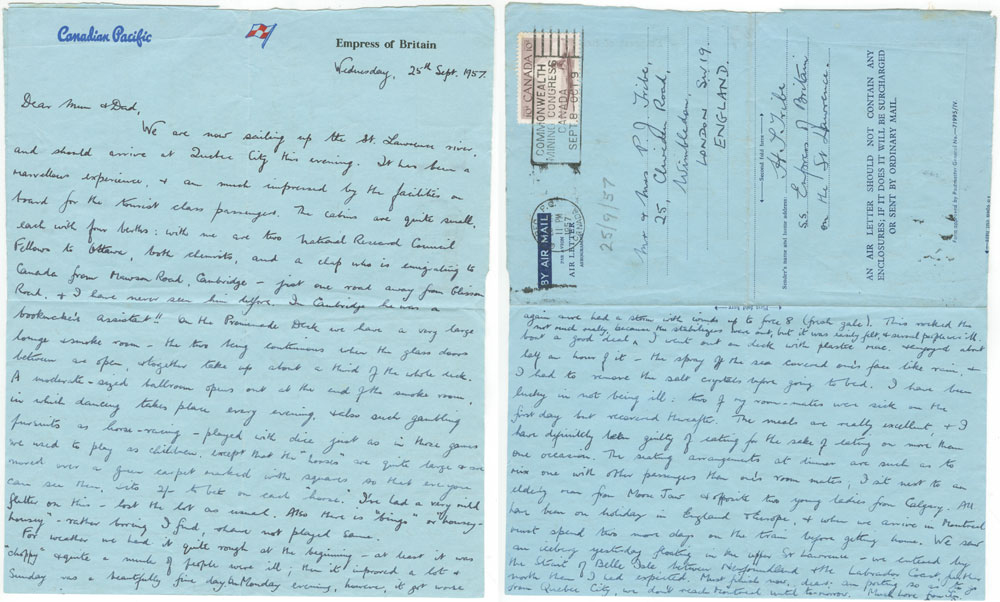 Canadian Pacific
Empress of Britain
Wednesday, 25th Sept. 1957.
Dear Mum & Dad,
We are now sailing up the St. Lawrence river
and should arrive at Quebec City this evening. It has been a
marvellous experience, & am much impressed by the facilities on
board for the tourist class passengers. The cabins are quite small,
each with four berths: with me are two National Research Council
Fellows to Ottawa, both chemists, and a chap who is emigrating to
Canada from Mawson Road, Cambridge - just one road away from Glisson
Road, & I have never seen him before. In Cambridge he was a
bookmaker's assistant!! On the Promenade Deck we have a very large
lounge & smoke room - the two being continuous when the glass doors
between are open, & together take up about a third of the whole deck.
A moderate-sized ballroom opens out at the end of the smoke room,
in which dancing takes place every evening, & also such gambling
pursuits as horse-racing - played with dice just as in those games
we used to play as children, except that the "horses" are quite large & are
moved over a green carpet marked with squares, so that everyone
can see them, its 2/- to bet on each "horse". I've had a very mild
flutter on this - lost the lot as usual. Also there is "bingo" or "housey-
housey" - rather boring I find, & have not played same.
For weather we had it quite rough at the beginning - at least it was
"choppy" & quite a number of people were ill; then it improved a lot &
Sunday was a beautifully fine day. On Monday evening, however, it got worse
10¢ CANADA 10¢
COMMONWEALTH
MINING CONGRESS
CANADA
SEPT. 8 - OCT. 9
11 PM
1957
BY AIR MAIL
PAR AVION
AIR LETTER
AEROGRAMME
25/9/57
Mr & Mrs P. J. Tribe,
25, Clavidge Road,
Wimbledon,
LONDON SW19.
ENGLAND.
Second fold here
Sender's name and home address:
H. P. Tribe
SS Empress of Britain
on the St Lawrence.
AN AIR LETTER SHOULD NOT CONTAIN ANY
ENCLOSURES; IF IT DOES IT WILL BE SURCHARGED
OR SENT BY ORDINARY MAIL
Form approved by Postmaster General No.-71995/IV
First fold here
again and we had a storm with winds up to force 8 (fresh gale). This rocked the
not much really, because the stabilizers were out, but it was easily felt, & several people were ill.
boat a good deal, & I went out on deck with plastic mac & enjoyed about
half an hour of it - the spray of the sea covered one's face like rain, &
I had to remove the salt crystals before going to bed. I have been
lucky in not being ill: two of my room-mates were sick on the
first day but recovered thereafter. The meals are really excellent, & I
have definitely been guilty of eating for the sake of eating on more than
one occasion. The seating arrangements at dinner are such as to
mix one with other passengers than one's room mates; I sit next to an
elderly man from Moose Jaw & opposite two young ladies from Calgary. All
have been on holiday in England & Europe, & when we arrive in Montreal
must spend two more days on the train before getting home. We saw
an iceberg yesterday floating in the upper St Lawrence - we entered by
the Strait of Belle Isle between Newfoundland & the Labrador Coast, further
north than I had expected. Must finish now, dears - am posting so as to go
from Quebec City, we don't reach Montreal until tomorrow. Much love from